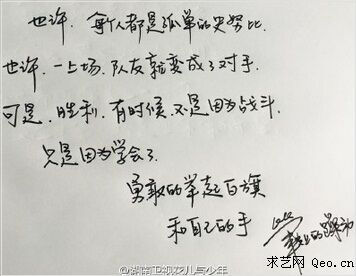 也许，每个人都是孤单的史努比
也许，一上场，队友就变成了对手
可是，胜利，有时候，不是因为战斗，
只是因为学会了
勇敢的举起白旗
和自己的手
@湖南卫视花儿与少年
求艺网 Qeo.cn